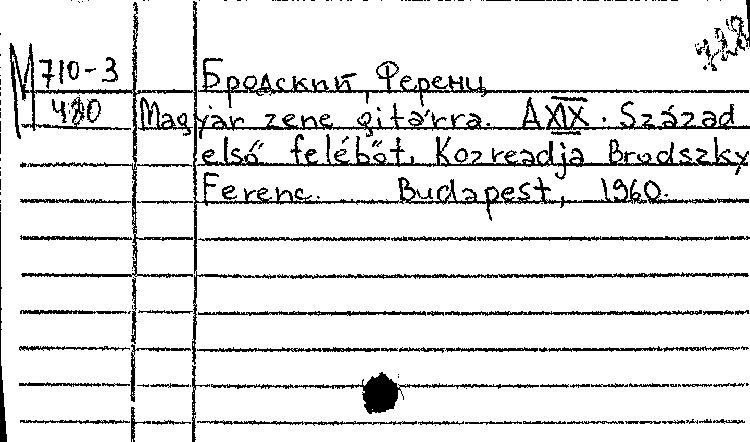 728
М 710-3
480
Бродский, Ференц
Magyar zene gitárra. A XIX. Század
első felébőt. Kozreadja Brodszky
Ferenc. Budapest, 1960.